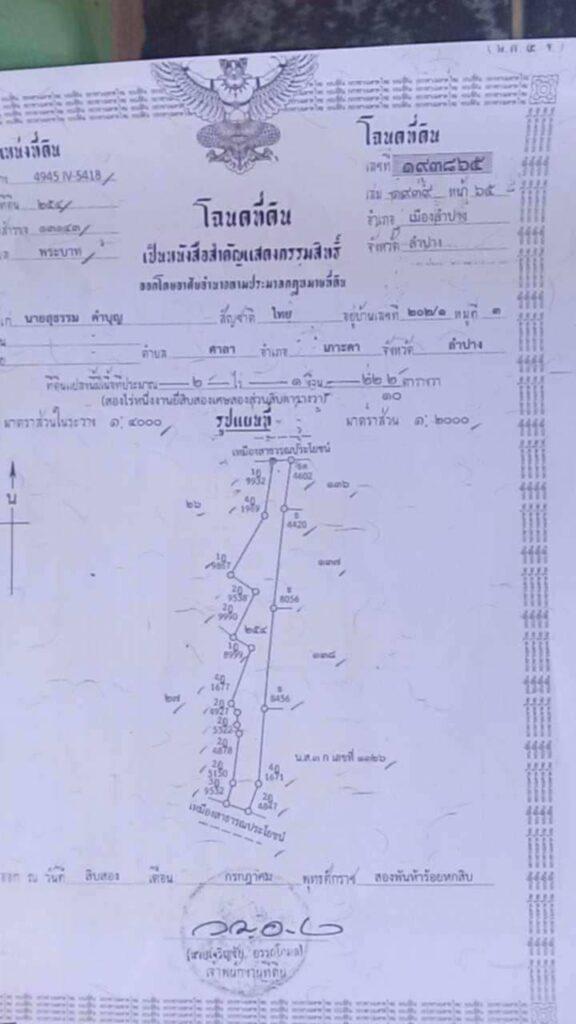 (น.ส. ๔ จ.)
โฉนดที่ดิน
เลขที่ ๑๙๓๘๖๕
เล่ม ๑๙๓๙ หน้า ๖๕
อำเภอ เมืองลำปาง
จังหวัด ลำปาง
แหน่งที่ดิน
4945 IV-5418
ที่ดิน ๒๕๔
สำรวจ ๑๓๑๔๓
พระบาท
โฉนดที่ดิน
เป็นหนังสือสำคัญแสดงกรรมสิทธิ์
ออกโดยอาศัยอำนาจตามประมวลกฎหมายที่ดิน
นายสุธรรม คำบุญ สัญชาติ ไทย อยู่บ้านเลขที่ ๒๐๒/๑ หมู่ที่ ๓
ตำบล ศาลา อำเภอ เกาะคา จังหวัด ลำปาง
ที่ดินแปลงนี้มีเนื้อที่ประมาณ ๒ ไร่ ๑ งาน ๒๒ ๒/๑๐ ตารางวา
(สองไร่หนึ่งงานยี่สิบสองเศษสองส่วนสิบตารางวา)
มาตราส่วนในระวาง ๑:๔๐๐๐ รูปแผนที่ มาตราส่วน ๑:๒๐๐๐
เหมืองสาธารณประโยชน์
น
9932
4602
๑๓๖
๒๖
1989
4420
๑๓๗
9887
9538
8056
9990
๒๕๔
8999
๑๓๘
1677
๒๗
4927
8456
5322
4878
น.ส.๓ ก เลขที่ ๑๑๒๖
5150
1671
9532
4847
เหมืองสาธารณประโยชน์
ออก ณ วันที่ สิบสอง เดือน กรกฎาคม พุทธศักราช สองพันห้าร้อยหกสิบ
เจ้าพนักงานที่ดิน